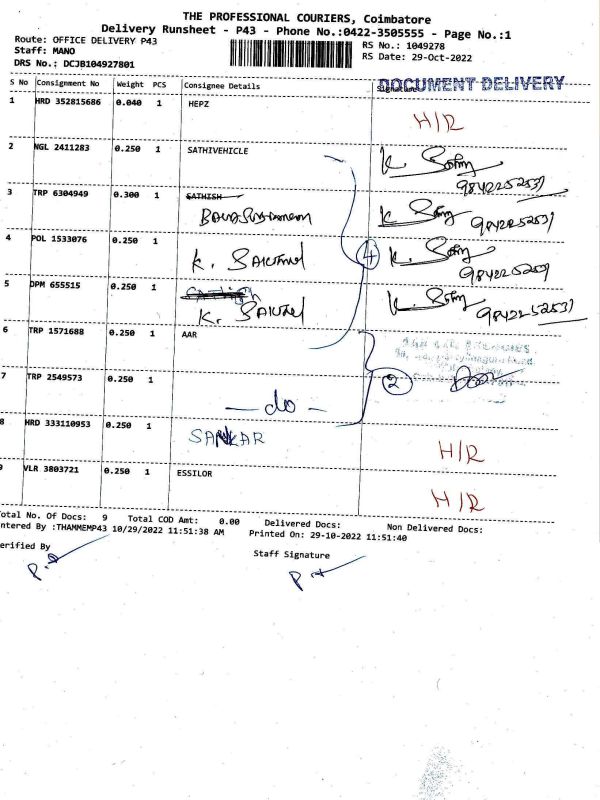 THE PROFESSIONAL COURIERS, Coimbatore
Delivery Runsheet - P43 - Phone No.:0422-3505555 - Page No.:1
Route: OFFICE DELIVERY P43
RS No.: 1049278
Staff: MANO
RS Date: 29-Oct-2022
DRS No.; DCJB104927801
DOCUMENT DELIVERY
S No Consignment No Weight PCS Consignee Details Signature
1 HRD 352815686 0.040 1 HEPZ H/R
2 NGL 2411283 0.250 1 SATHIVEHICLE K 9842252531
3 TRP 6304949 0.300 1 SATHISH K 9842252531
4 POL 1533076 0.250 1 K. K 9842252531
5 DPM 655515 0.250 1 K. K 9842252531
4
6 TRP 1571688 0.250 1 AAR
7 TRP 2549573 0.250 1 - do - 2
8 HRD 333110953 0.250 1 SANKAR H/R
9 VLR 3803721 0.250 1 ESSILOR H/R
Total No. Of Docs: 9 Total COD Amt: 0.00 Delivered Docs: Non Delivered Docs:
Entered By :THAMMEMP43 10/29/2022 11:51:38 AM Printed On: 29-10-2022 11:51:40
Verified By
Staff Signature